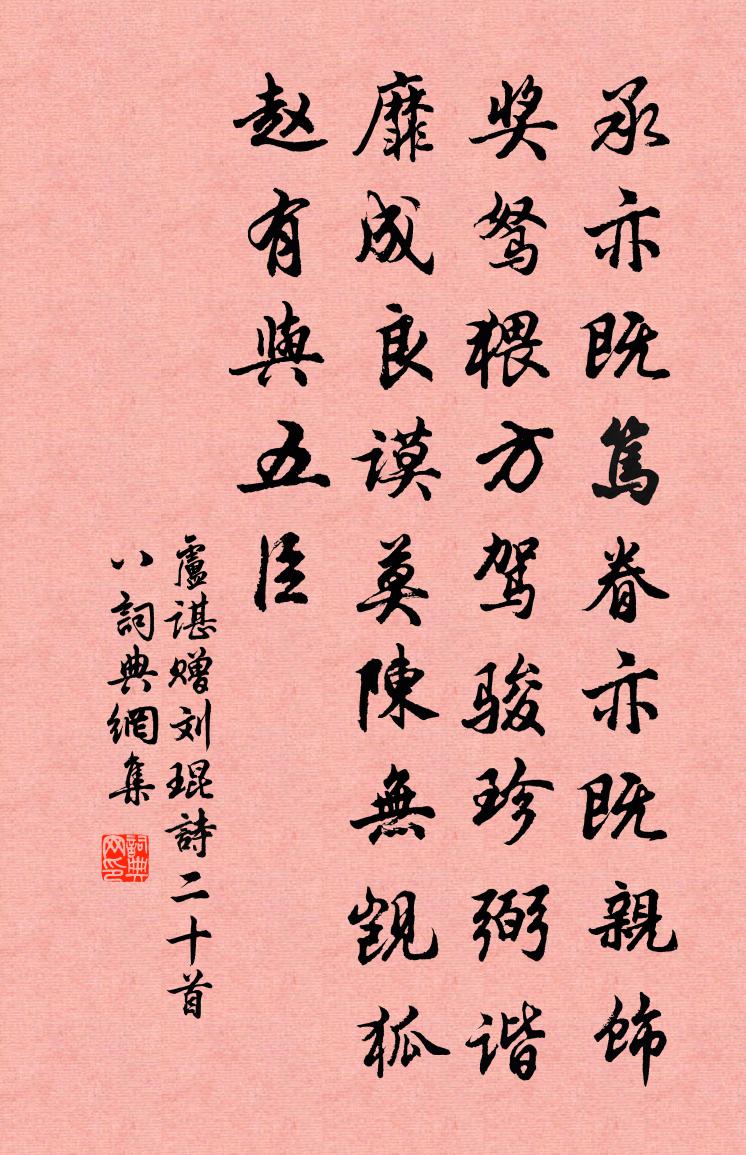 承亦既篤眷亦既親飾
奖驽猥方驾骏珍弼谐
靡成良谟莫陳無觊狐
赵有與五臣
盧谌赠刘琨詩二十首
八詞典網集
詞典
网印